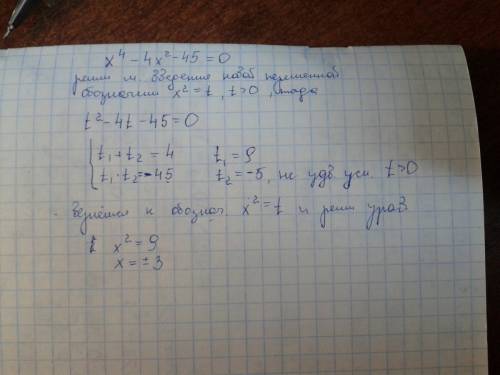 x⁴ - 4x² - 45 = 0
решим м. введения новой переменной
обозначим x² = t, t > 0, тогда
t² - 4t - 45 = 0
{ t₁ + t₂ = 4 t₁ = 9
{ t₁ · t₂ = -45 t₂ = -5, не удв усл. t > 0
Вернёмся к обознач. x² = t и решим урав.
x² = 9
x = ±3